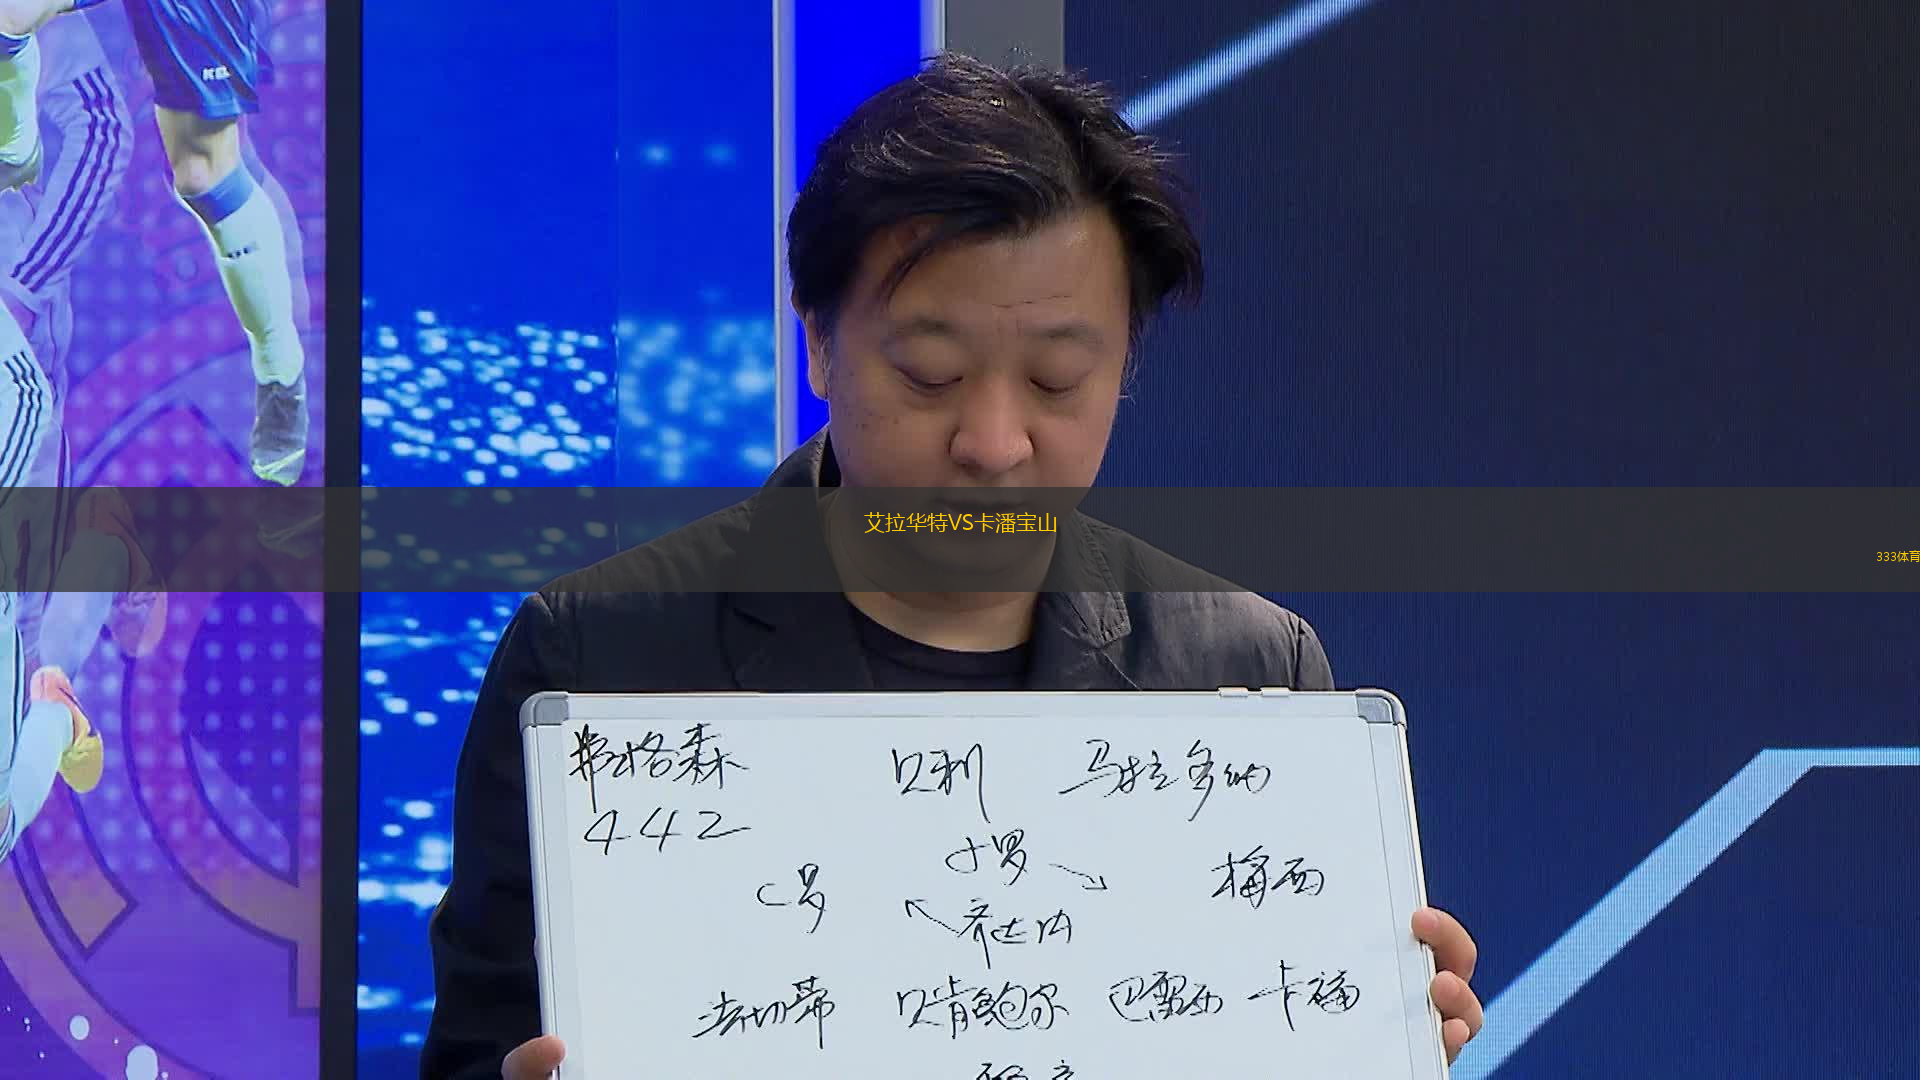 KEL
艾拉华特VS卡潘宝山
333体育
弗格森 贝利 马拉多纳
442
小罗
C罗 梅西
齐达内
法切蒂 贝肯鲍尔 巴雷西 卡福